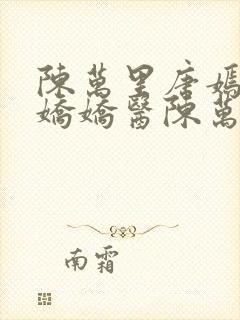 陳萬里唐嫣
嬌嬌醫陳萬
南霜